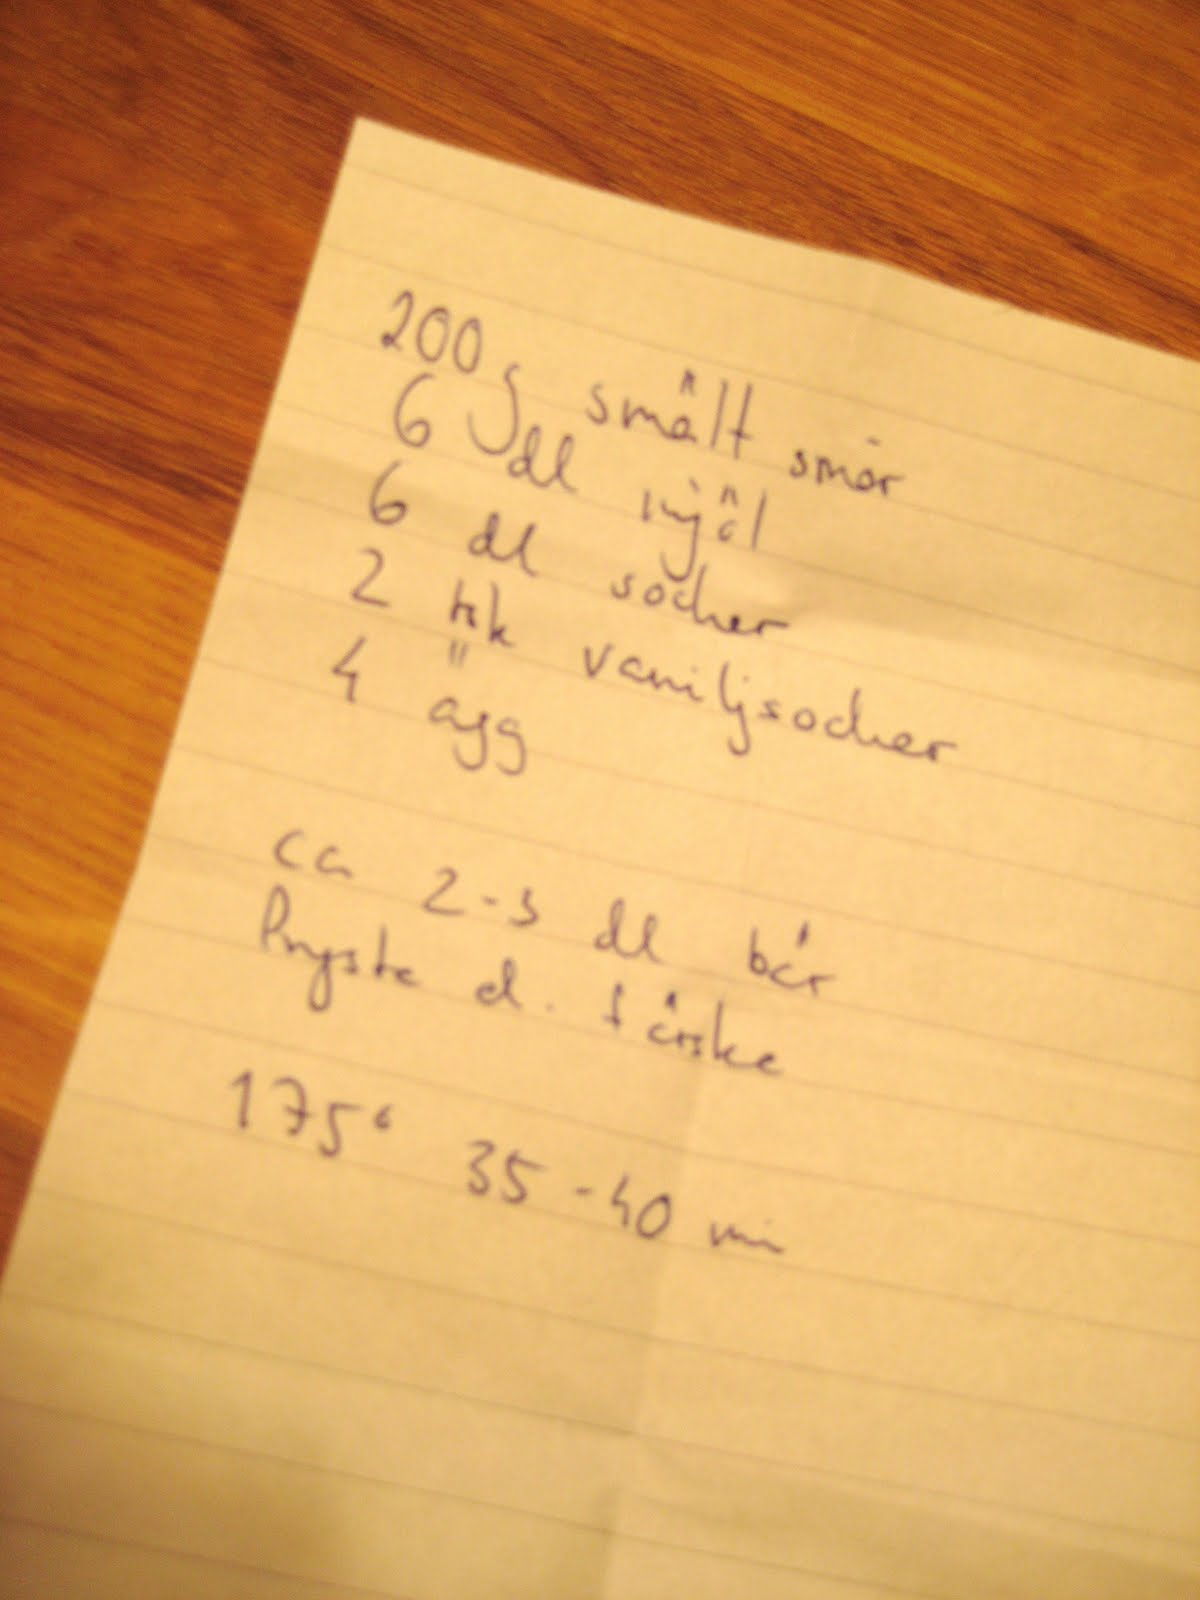 200 g smält smör
6 dl mjöl
6 dl socker
2 tsk vaniljsocker
4 ägg
ca 2-3 dl bär
Frysta el. färska
175° 35-40 min